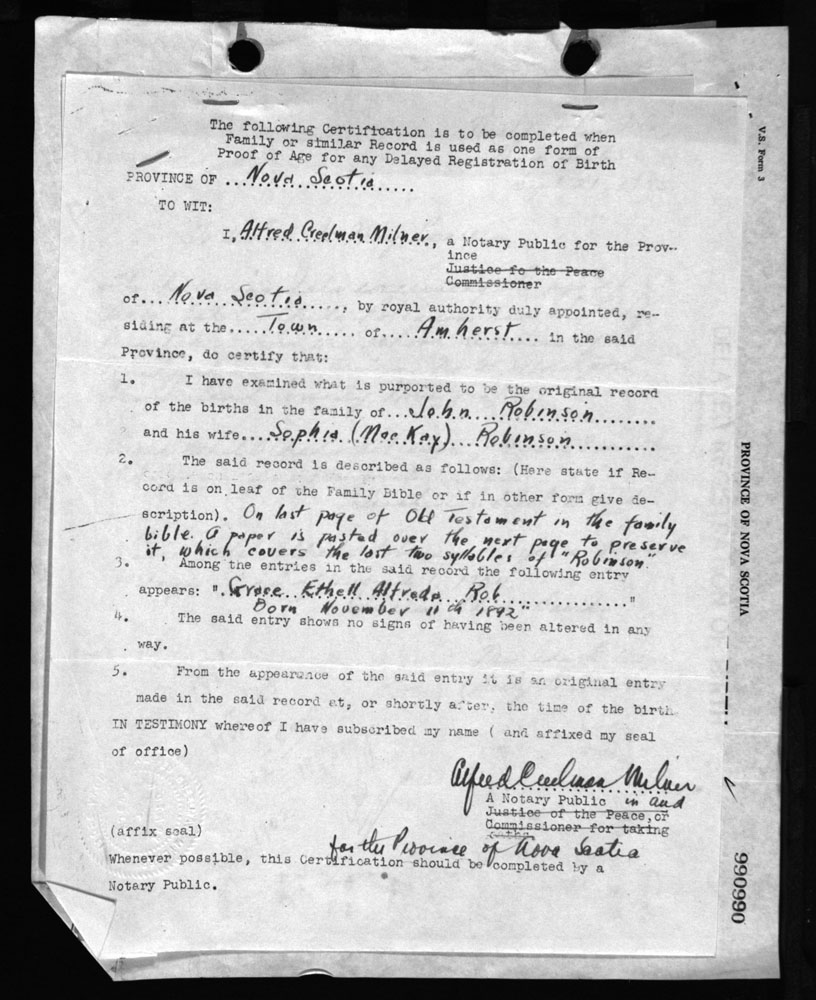 The following Certification is to be completed when
Family or similar Record is used as one form of
Proof of Age for any Delayed Registration of Birth
PROVINCE OF ...Nova Scotia.....
TO WIT:
I, Alfred Creelman Milner, a Notary Public for the Prov-
ince
Justice fo the Peace
Commissioner
of....Nova Scotia....., by royal authority duly appointed, re-
siding at the.....Town..... of.....Amherst.... in the said
Province, do certify that:
1. I have examined what is purported to be the original record
of the births in the family of...John....Robinson........
and his wife....Sophia (MacKay)...Robinson............
2. The said record is described as follows: (Here state if Re-
cord is on leaf of the Family Bible or if in other form give de-
scription). On last page of Old Testament in the family
bible. A paper is pasted over the next page to preserve
it, which covers the last two syllables of "Robinson".
3. Among the entries in the said record the following entry
appears: "Grace Ethell Alfreda Rob................"
Born November 11th 1892"
4. The said entry shows no signs of having been altered in any
way.
5. From the appearance of the said entry it is an original entry
made in the said record at, or shortly after, the time of the birth
IN TESTIMONY whereof I have subscribed my name ( and affixed my seal
of office)
Alfred Creelman Milner
A Notary Public in and
Justice of the Peace, or
Commissioner for taking
(affix seal)
for the Province of Nova Scotia
Whenever possible, this Certification should be completed by a
Notary Public.
V.S. Form 3
PROVINCE OF NOVA SCOTIA
990990